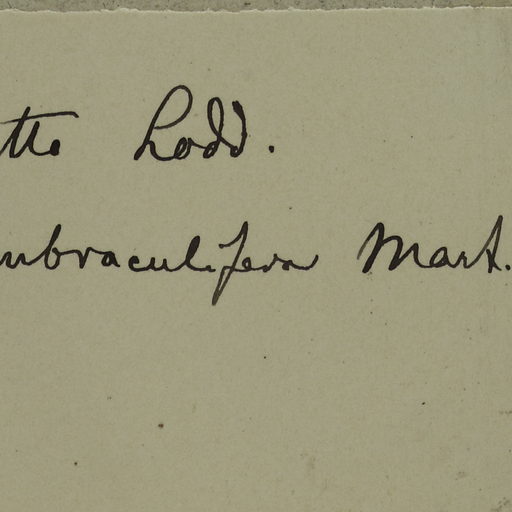 tta Lodd.
mbraculifera Mart.